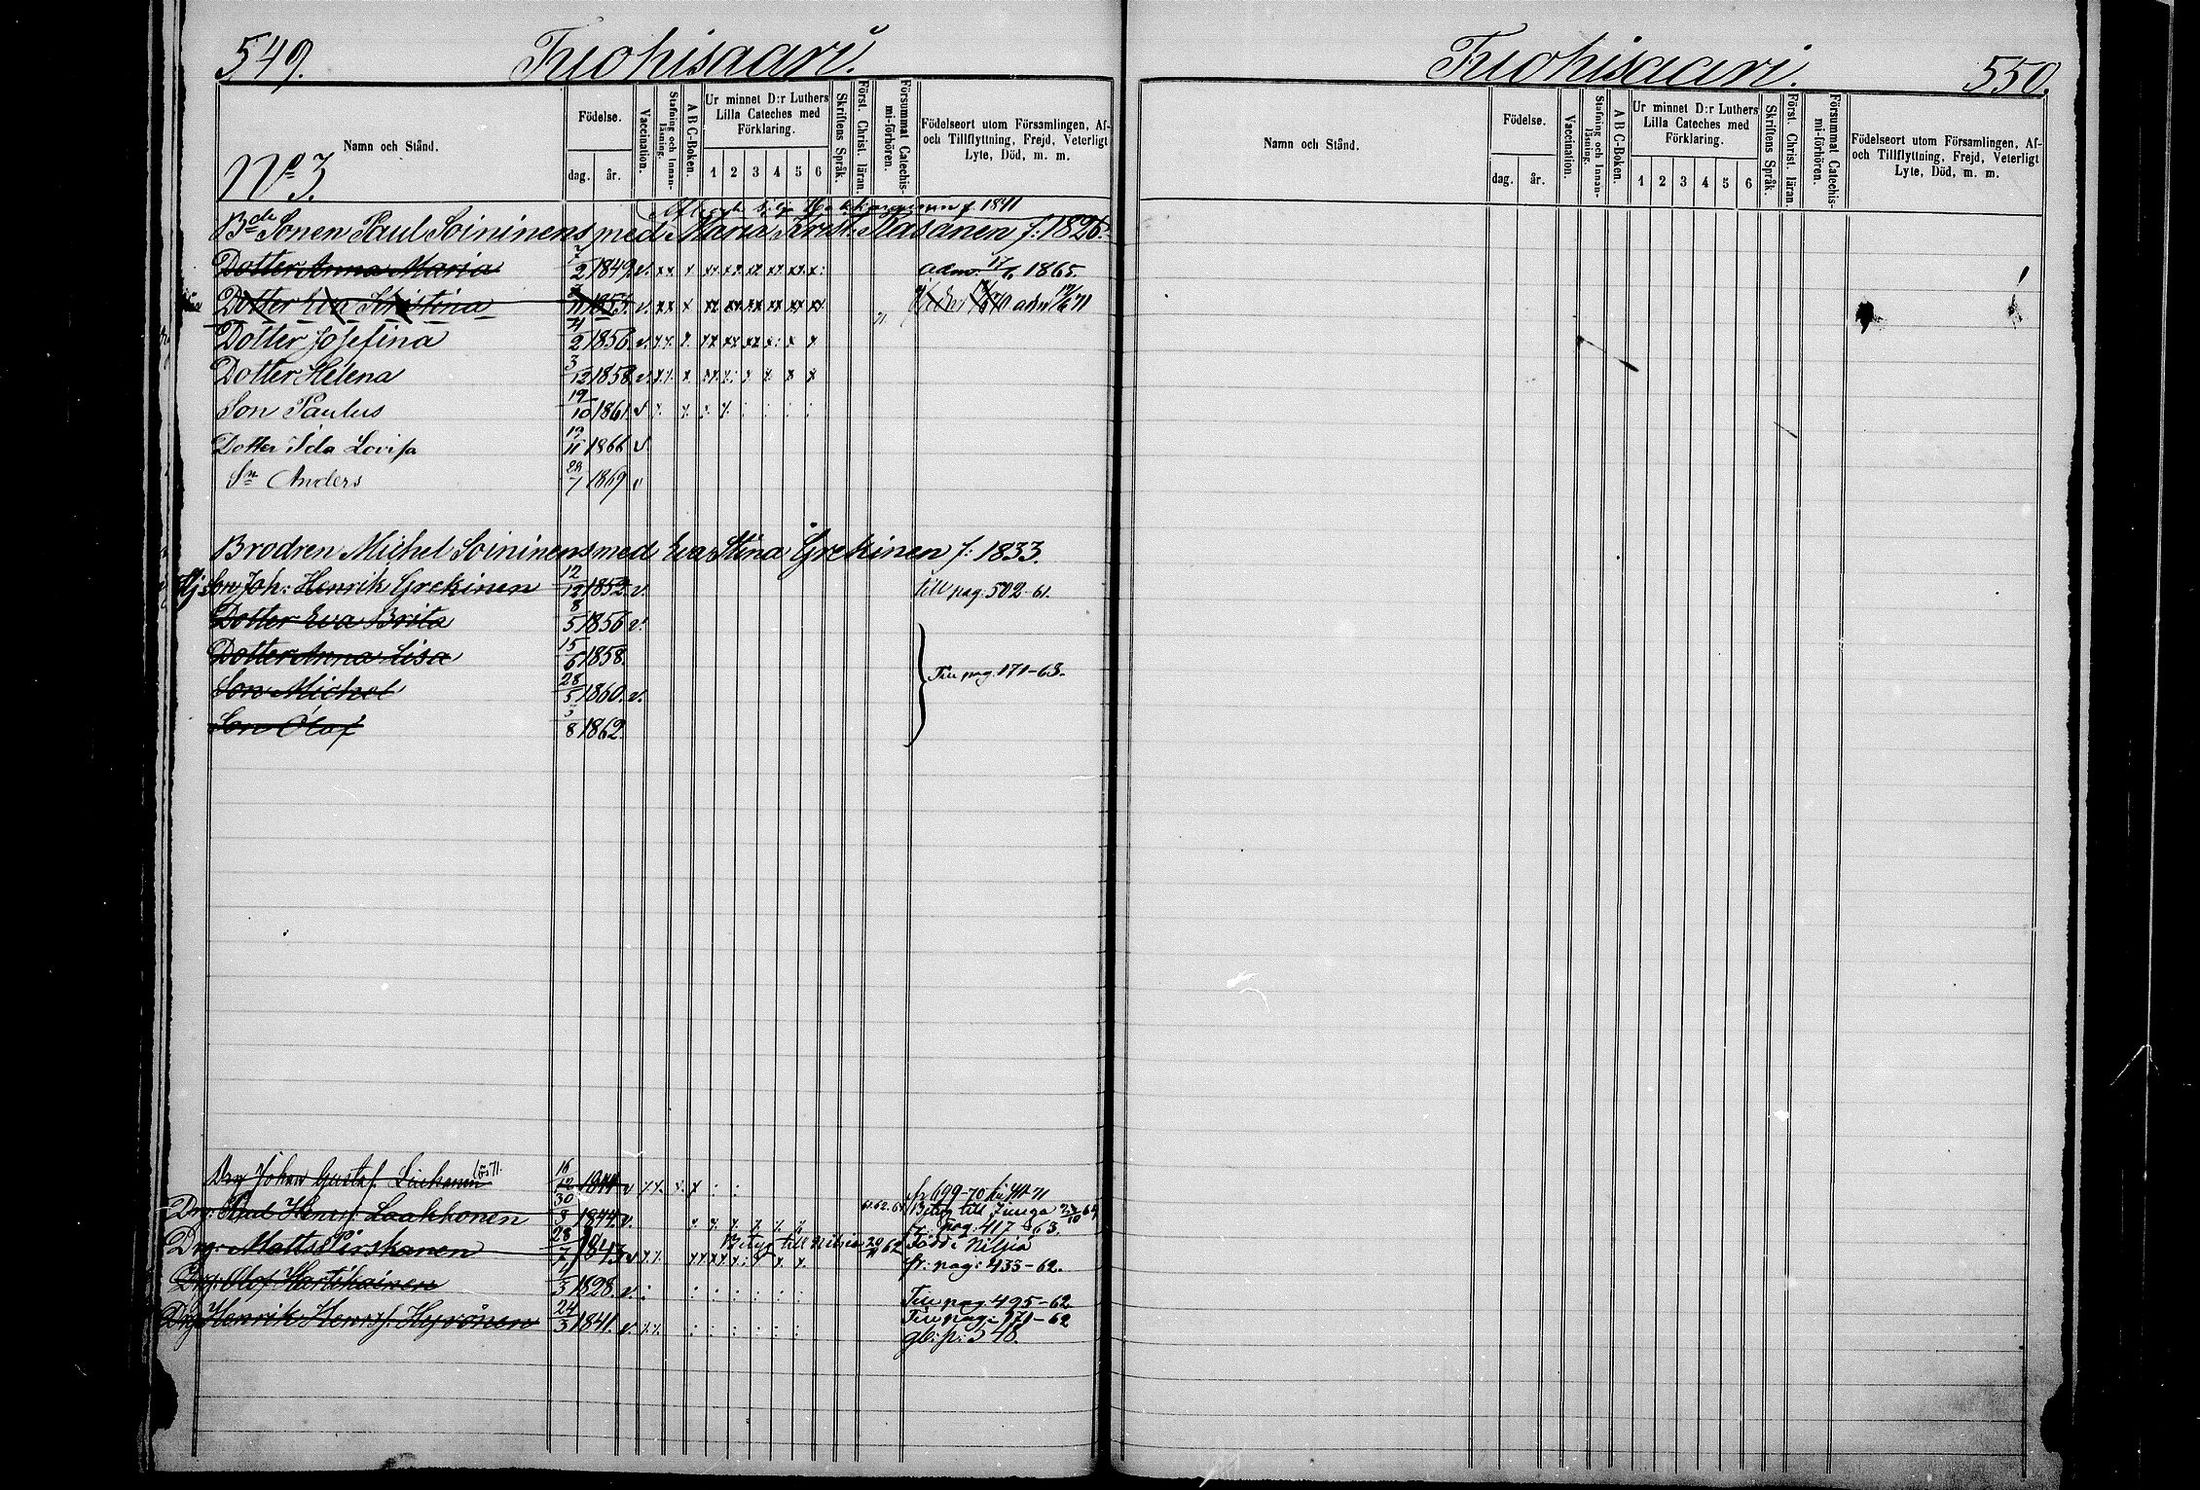 549. Tuohisaari.
Namn och Stånd.
Födelse.
dag. år.
Vaccination.
Stafning och Innan-läsning.
A B C-Boken.
Ur minnet D:r Luthers Lilla Cateches med Förklaring.
1 2 3 4 5 6
Skriftens Språk.
Först. Christ. läran.
Försummat Catechis-mi-förhören.
Födelseort utom Församlingen, Af- och Tillflyttning, Frejd, Veterligt Lyte, Död, m. m.
No 3.
f 1841
Bde Sonen Paul Soininens med Maria Krist. Räsänen f: 1826.
Dotter Anna Maria 7/2 1849. v. adm. 17/6 1865.
Dotter Eva Kristina 1855. v. adm 71
Dotter Josefina 4/2 1856. v.
Dotter Helena 3/12 1858. v.
Son Paulus 19/10 1861. v
Dotter Ida Lovisa 19/11 1866 v
Sn Anders 28/7 1869 v
Brodren Michel Soininens med Eva Stina Grekinen f: 1833.
Son Joh: Henrik Grekinen 12/12 1852. v. till pag. 502-61.
Dotter Eva Brita 8/5 1856 v.
Dotter Anna Lisa 15/6 1858.
Till pag. 171-63.
Son Michel 28/5 1860. v.
Son Olof 3/8 1862.
Drg Johan Gustaf 16/12 1844 v fr 699-70
Drg: Paul Henr:f. Laakkonen 30/3 1844. v. 61.62.64 Betyg till Junga 64
fr. pag. 417-63.
Betyg till Nilsiä 62 Född i Nilsiä
Drg: Matts Pirskanen 28/7 1843 v fr: pag: 433-62.
Drg: Olof Hartikainen 1/3 1828. v. Till pag. 495-62
Drg: Henrik Henr:f. Hyvönen 24/3 1841. v. Till pag: 171-62
gb: p: 548.
Tuohisaari. 550.
Namn och Stånd.
Födelse.
dag. år.
Vaccination.
Stafning och Innan-läsning.
A B C-Boken.
Ur minnet D:r Luthers Lilla Cateches med Förklaring.
1 2 3 4 5 6
Skriftens Språk.
Först. Christ. läran.
Försummat Catechis-mi-förhören.
Födelseort utom Församlingen, Af- och Tillflyttning, Frejd, Veterligt Lyte, Död, m. m.